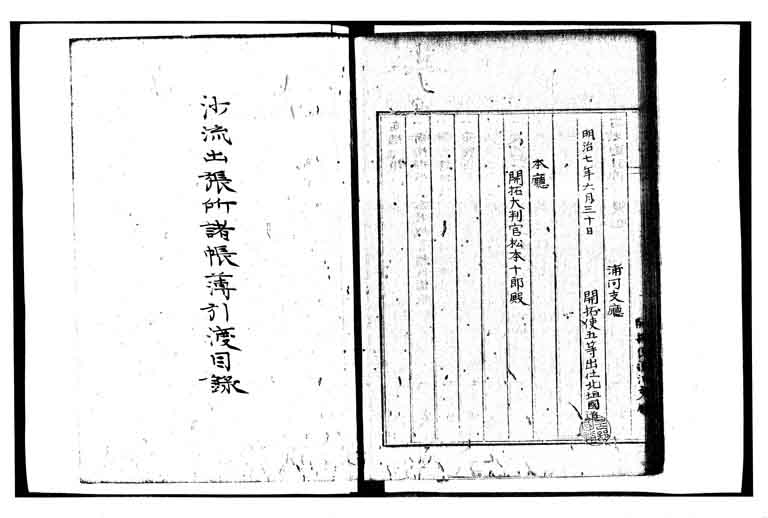 明治七年六月三十日
浦河支廳
開拓使五等出仕北垣國道
本廳
開拓大判官松本十郎殿
沙流出張所諸帳薄引渡目録